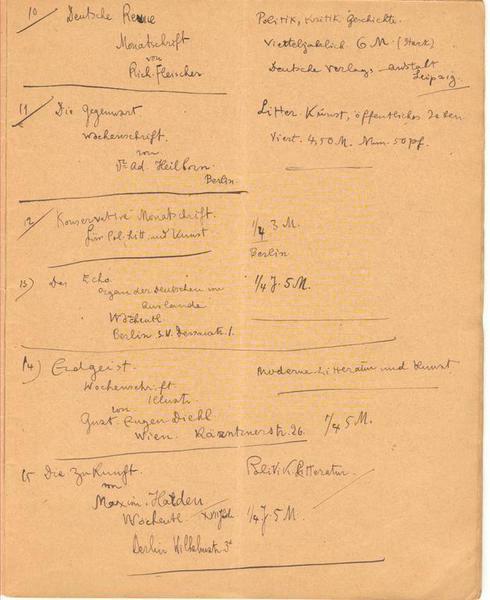 10/ Deutsche Revue
Politik, Kritik Geschichte.
Monatschrift
Vierteljährlich 6 M. (Mark)
von
Rich. Fleischer
Deutsche Verlags-anstalt
Leipzig.
11/ Die Gegenwart
Litter. Kunst, öffentliches Leben
Wochenschrift.
Viert. 4,50 M. Num. 50 pf.
von
Dr Ad. Heilborn.
Berlin
12/ Konservative Monatschrift.
1/4 3 M.
für Pol. Litt. und Kunst
Berlin
13) Das Echo.
1/4 J. 5 M.
organ der Deutschen im
Auslande
Wöchentl
Berlin S.W. 1.
14) Erdgeist.
Moderne Litteratur und Kunst
Wochenschrift
illustr.
von
Gust. Eugen Diehl
1/4 5 M.
Wien. Kärntnerstr. 26.
15 Die Zukunft.
Politik. Litteratur.
von
Maxim. Harden
Wöchentl
1/4 J. 5 M.
Berlin 3a